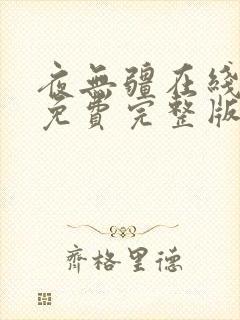 夜無疆在綫
免費完整版
齊格里德